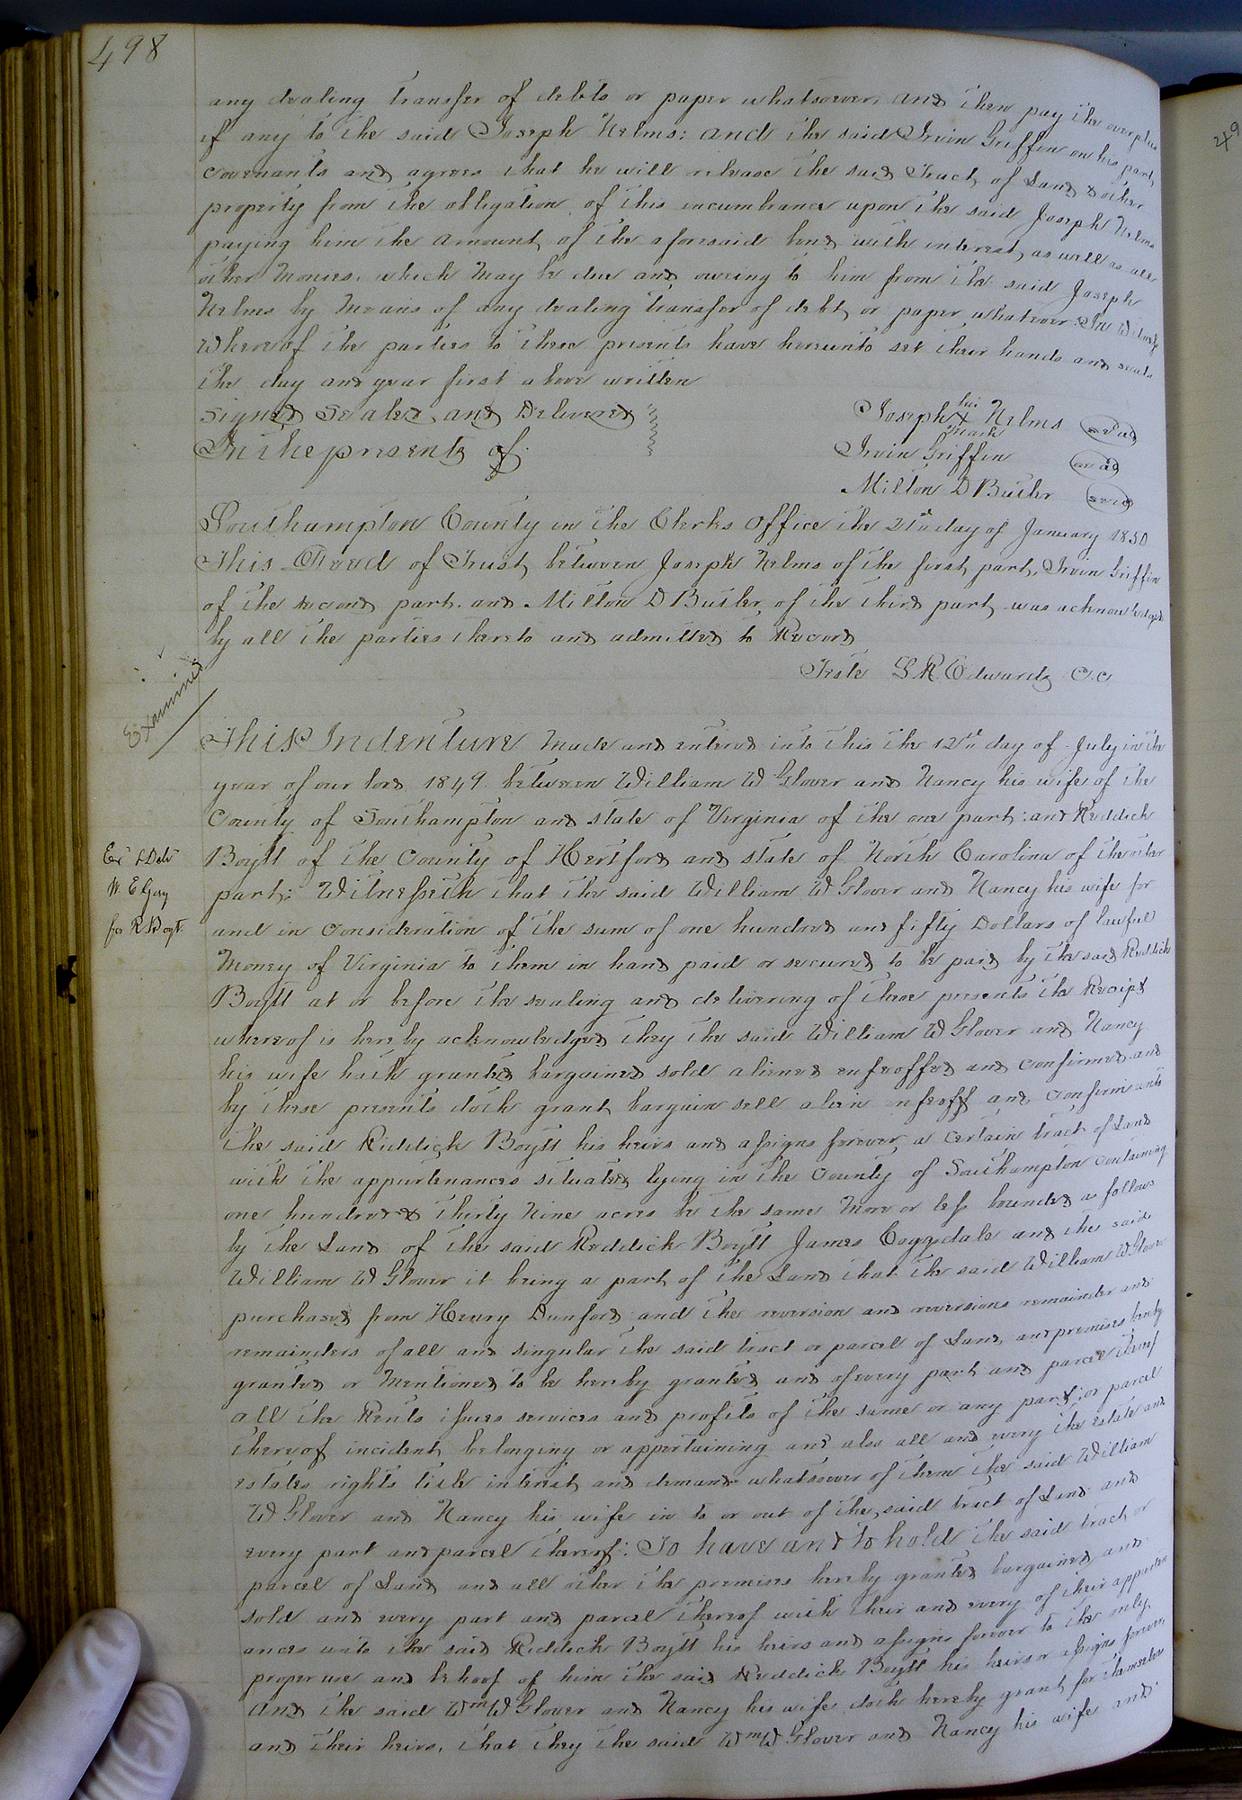 498
any dealing transfer of debts or paper whatsoever. and then pay the overplus
if any to the said Joseph Nelms: and the said Irvin Griffin on his part
covenants and agrees that he will release the said Tract of Land & other
property from the obligation of this incumbrance upon the said Joseph Nelms
paying him the amount of the aforesaid bond with interest, as well as all
other Monies. which May be due and owing to him from the said Joseph
Nelms by Means of any dealing transfer of debt or paper whatever: In Witness
Whereof the parties to these presents have hereunto set their hands and seals
the day and year first above written
Signed Sealed and Delivered
In the presents of
Joseph his X mark Nelms seal
Irvin Griffin seal
Milton D Butler seal
Southampton County in the Clerks Office the day of January 1850
This Deed of Trust between Joseph Nelms of the first part, Irvin Griffin
of the second part. and Milton D Butler of the third part was acknowledged
by all the parties thereto and admitted to Record
Teste L R Edwards C.C
Examined
This Indenture Made and entered into this the 12th day of July in the
year of our lord 1849 between William W Glover and Nancy his wife of the
County of Southampton and state of Virginia of the one part: and Riddick
Boytt of the County of Hertford and state of North Carolina of the other
part: Witnesseth that the said William W Glover and Nancy his wife for
and in consideration of the sum of one hundred and fifty Dollars of lawful
Money of Virginia to them in hand paid or secured to be paid by the said Riddick
Boytt at or before the sealing and delivering of these presents the Receipt
whereof is hereby acknowledged they the said William W Glover and Nancy
his wife hath granted bargained sold aliened enfeoffed and confirmed and
by these presents doth grant bargain sell alien enfeoff and confirm unto
the said Riddick Boytt his heirs and assigns forever a certain tract of Land
with the appurtenances situated lying in the County of Southampton containing
one hundred & thirty Nine acres be the same More or less bounded as follows
by the Land of the said Riddick Boytt James Coggsdale and the said
William W Glover it being a part of the Land that the said William W Glover
purchased from Henry Dunford and the reversion and reversions remainder and
remainders of all and singular the said tract or parcel of Land and premises hereby
granted or Mentioned to be hereby granted and of every part and parcel thereof
all the Rents issues services and profits of the same or any part or parcel
thereof incident belonging or appertaining and also all and every the estate and
estates rights title interest and demand whatsoever of them the said William
W Glover and Nancy his wife in to or out of the said tract of Land and
every part and parcel thereof: To have and to hold the said tract or
parcel of Land and all other the premises hereby granted bargained and
sold and every part and parcel thereof with their and every of their appurten
ances unto the said Riddick Boytt his heirs and assigns forever to the only
proper use and behoof of him the said Riddick Boytt his heirs & assigns forever
And the said Wm W Glover and Nancy his wife doth hereby grant for themselves
and their heirs. that they the said Wm W Glover and Nancy his wife and
Ex & Deld
W. E. Gay
for R Boyt